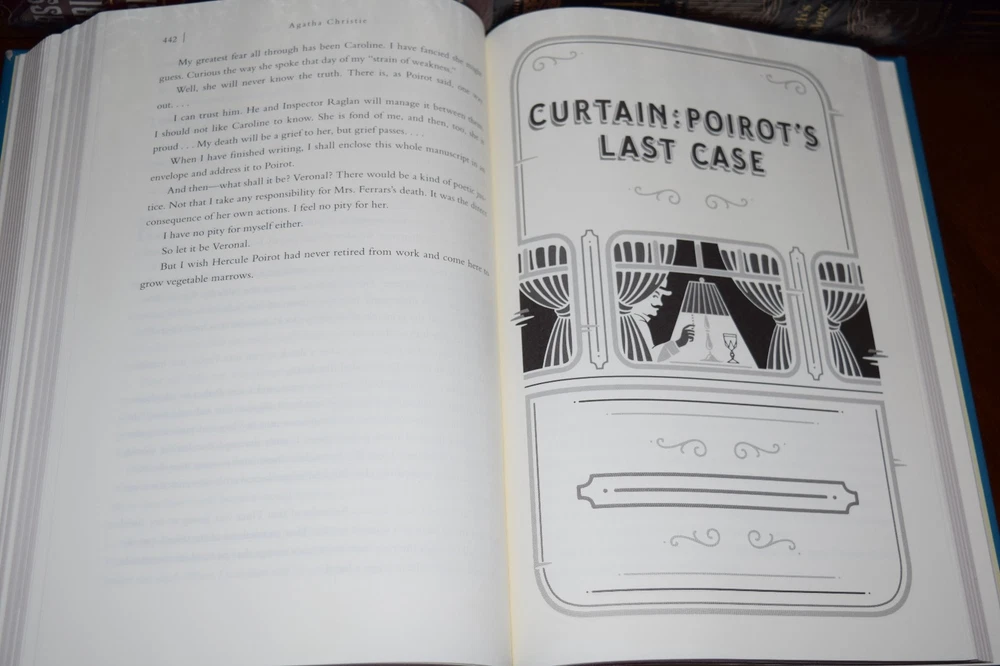 442
Agatha Christie
My greatest fear all through has been Caroline. I have fancied she might
guess. Curious the way she spoke that day of my “strain of weakness.”
Well, she will never know the truth. There is, as Poirot said, one way
out. . . .
I can trust him. He and Inspector Raglan will manage it between them.
I should not like Caroline to know. She is fond of me, and then, too, she is
proud . . . My death will be a grief to her, but grief passes. . . .
When I have finished writing, I shall enclose this whole manuscript in an
envelope and address it to Poirot.
And then—what shall it be? Veronal? There would be a kind of poetic jus-
tice. Not that I take any responsibility for Mrs. Ferrars’s death. It was the direct
consequence of her own actions. I feel no pity for her.
I have no pity for myself either.
So let it be Veronal.
But I wish Hercule Poirot had never retired from work and come here to
grow vegetable marrows.
CURTAIN: POIROT'S
LAST CASE